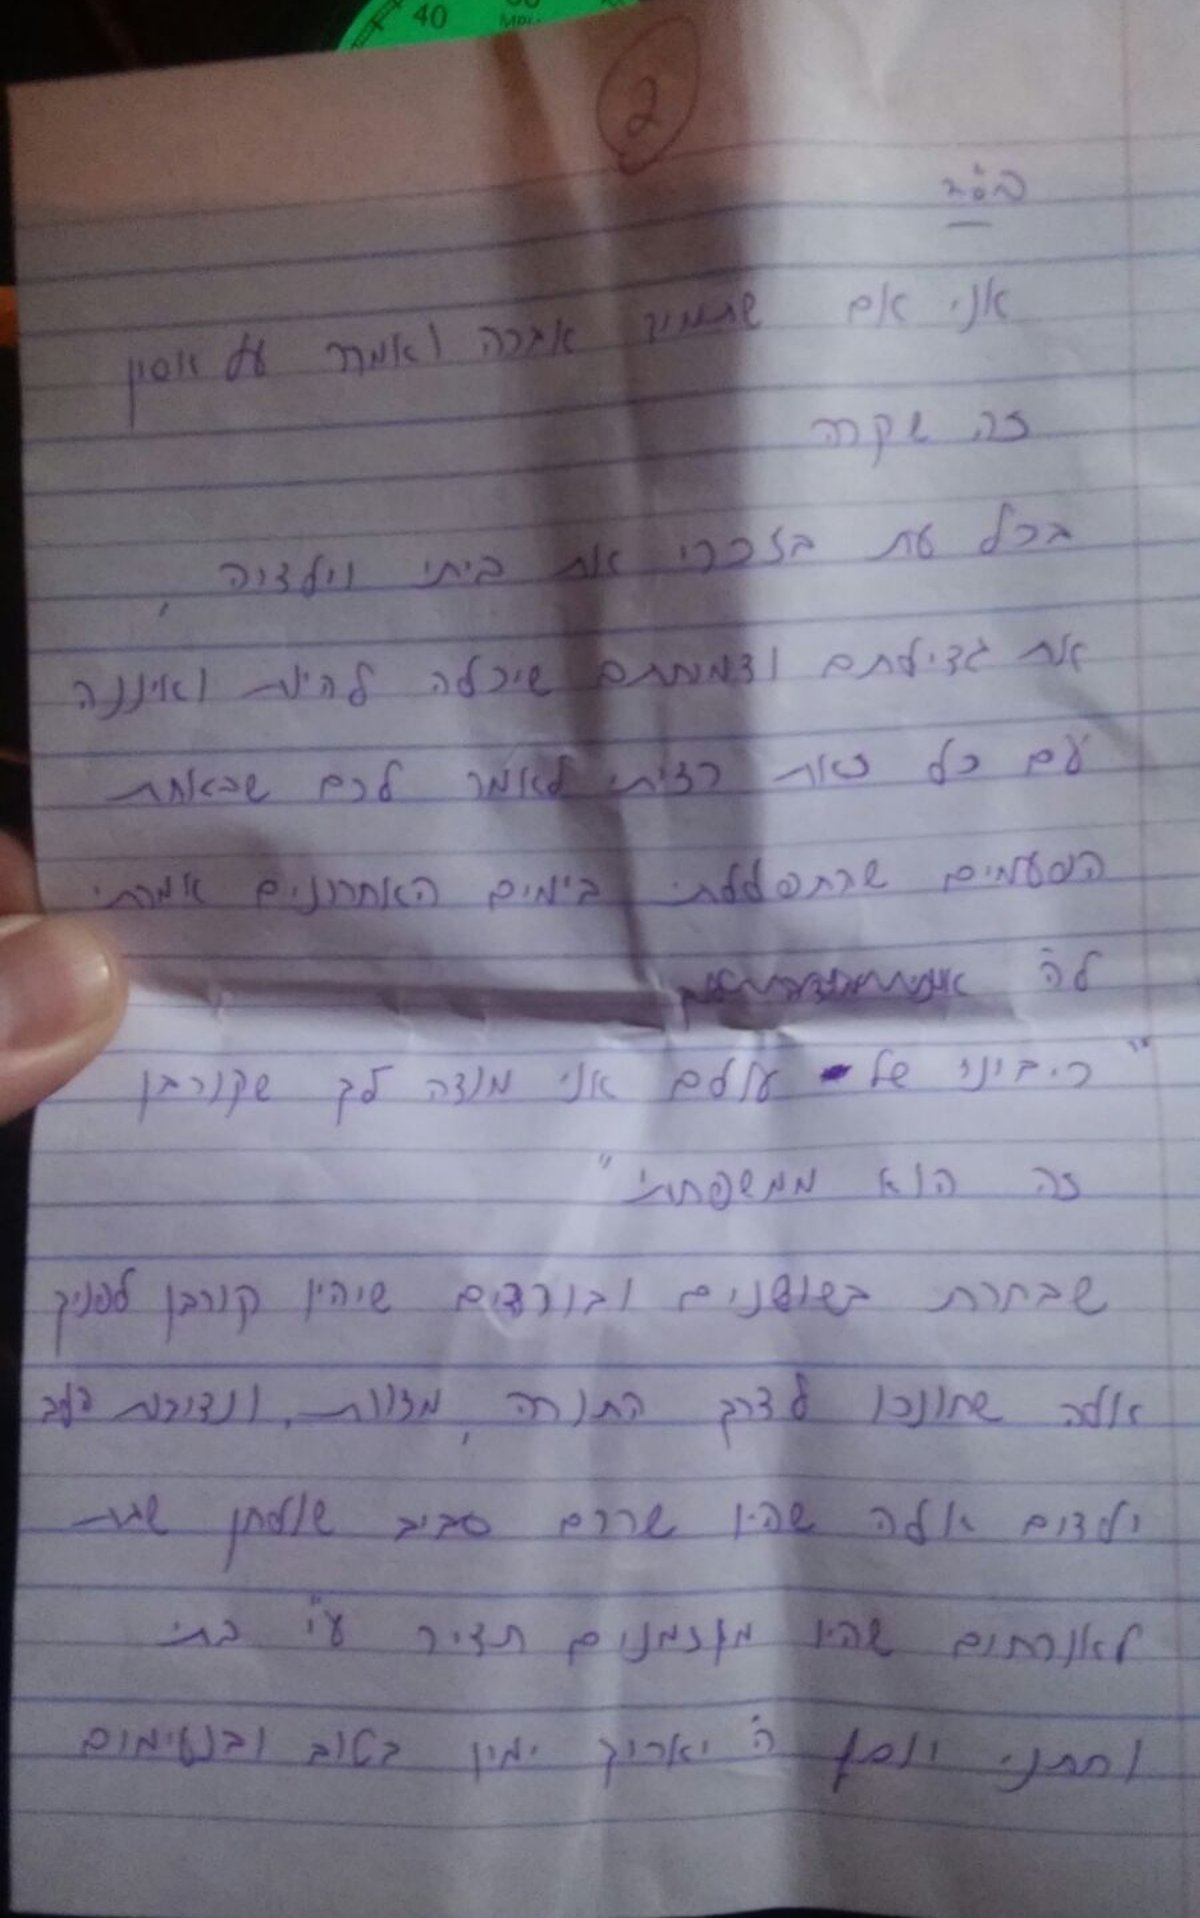 40
2
בס"ד
אני אם שתמיד אזכה ואמרר על אסון
זה שקרה
בכל עת בזכרי את ביתי וילדיה,
את גדילתם וצמיחתם שיכלה להיות ואיננה
עם כל זאת רציתי לאמר לכם שבאחת
הפעמים שהתפללתי בימים האחרונים אמרתי
לה'
"ריבוני של עולם אני מודה לך שקורבן
זה הוא ממשפחתי"
שבחרת בשושנים ובורדים שיהיו קורבן לפניך
אלה שחונכו לדרך התורה, מצוות, ונדיבות הלב
ילדים אלה שהיו שרים סביב שולחן שבת
לאורחים שהיו מוזמנים תדיר ע"י בתי
וחתני יוסף ה' יאריך ימיו בטוב ובנעימים